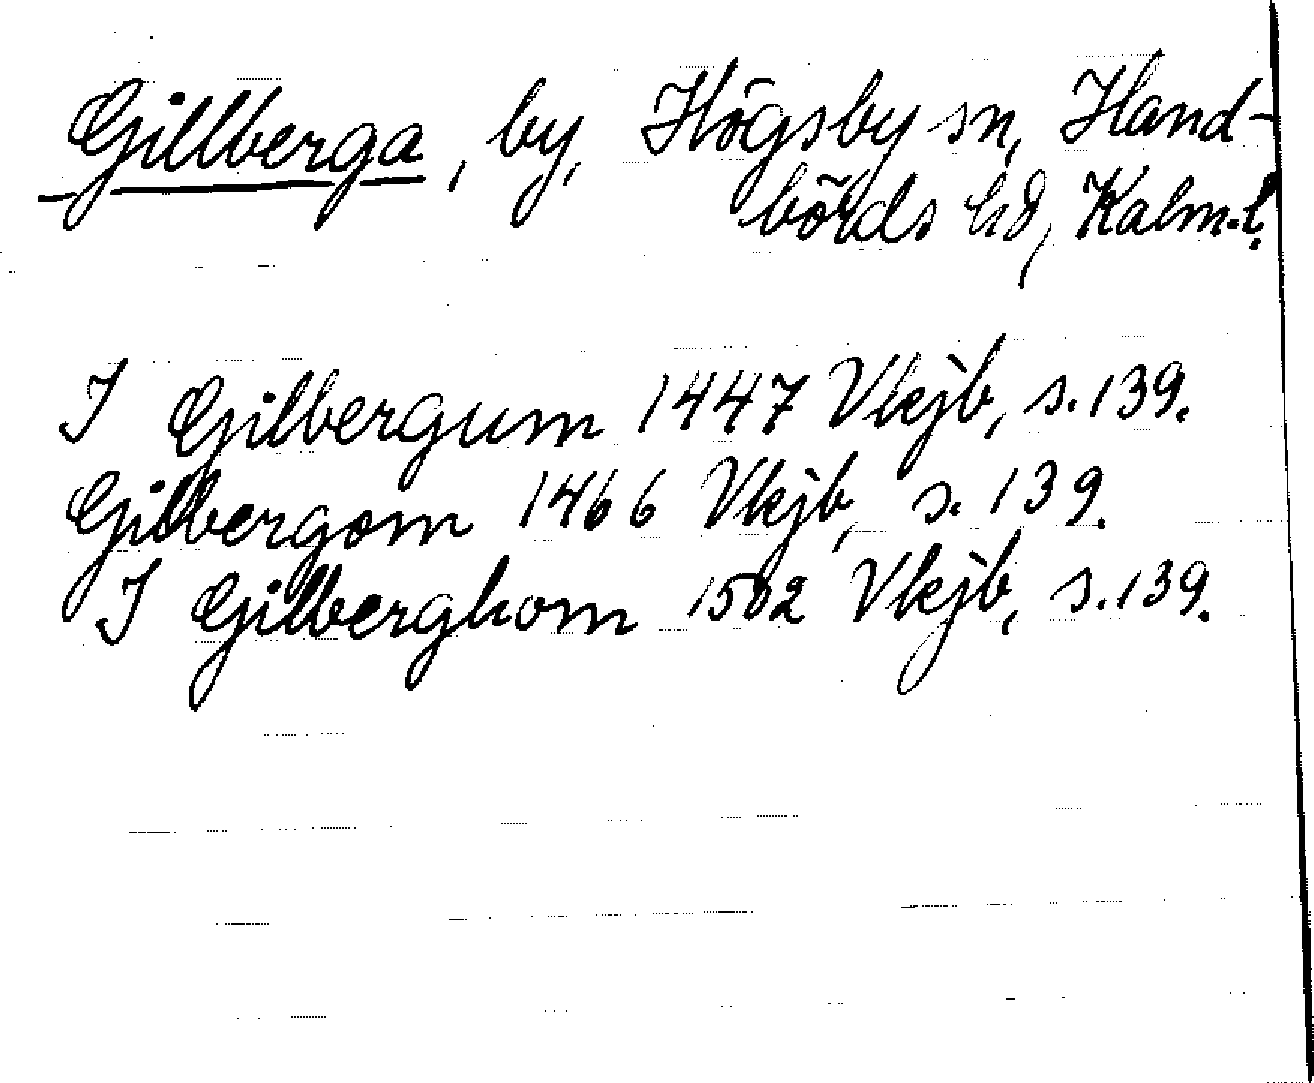 Gillberga, by, Högsby sn, Hand-
börds hd, Kalm.l.
I Gilbergum 1447 Vkjb, s. 139.
Gilbergom 1466 Vkjb, s. 139.
I Gilberghom 1502 Vkjb, s. 139.